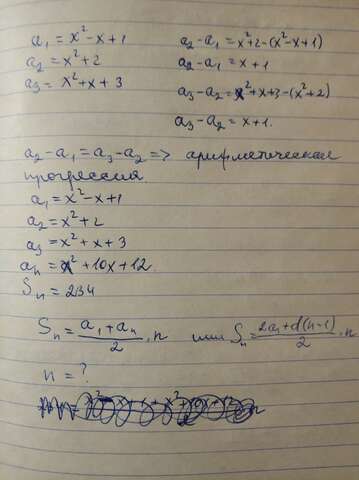 a₁ = x² - x + 1
a₂ = x² + 2
a₃ = x² + x + 3
a₂ - a₁ = x² + 2 - (x² - x + 1)
a₂ - a₁ = x + 1
a₃ - a₂ = x² + x + 3 - (x² + 2)
a₃ - a₂ = x + 1.
a₂ - a₁ = a₃ - a₂ => арифметическая
прогрессия.
a₁ = x² - x + 1
a₂ = x² + 2
a₃ = x² + x + 3
aₙ = x² + 10x + 12
Sₙ = 234
Sₙ = (a₁ + aₙ)/2 · n или Sₙ = (2a₁ + d(n-1))/2 · n
n = ?